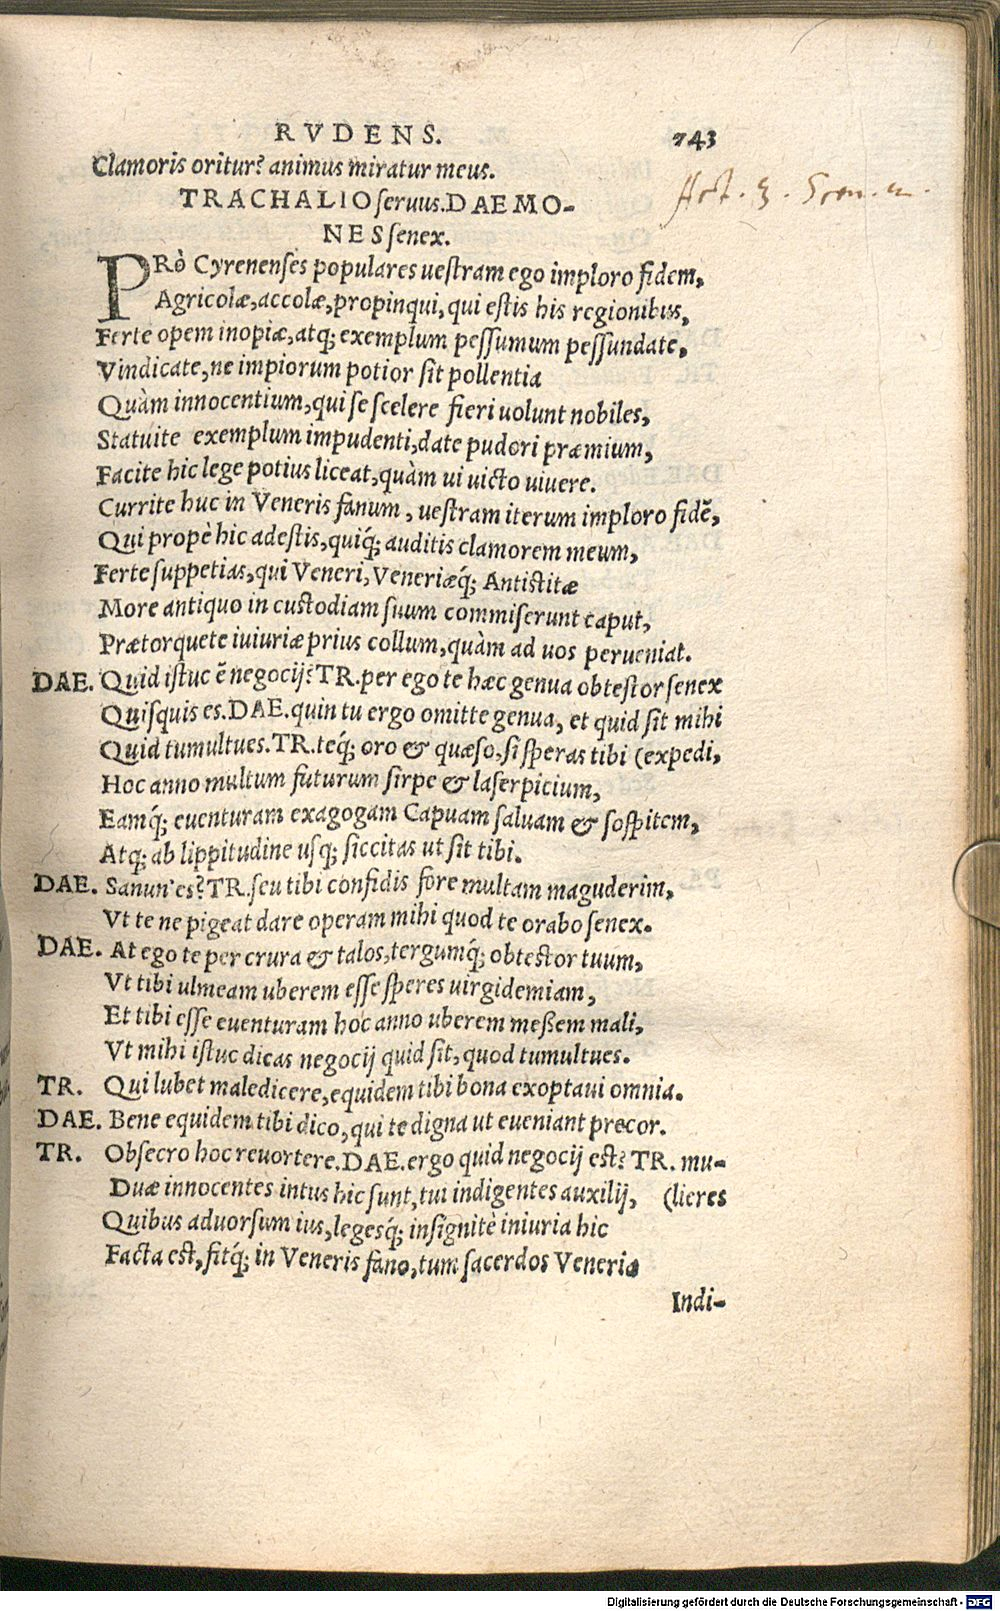 RVDENS. 743
Clamoris oritur? animus miratur meus.
TRACHALIO seruus. DAEMO-
NES senex.
Act. 3. Scen. 
PRò Cyrenenses populares uestram ego imploro fidem,
Agricolæ, accolæ, propinqui, qui estis his regionibus,
Ferte opem inopiæ, atq; exemplum pessumum pessundate,
Vindicate, ne impiorum potior sit pollentia
Quàm innocentium, qui se scelere fieri uolunt nobiles,
Statuite exemplum impudenti, date pudori præmium,
Facite hic lege potius liceat, quàm ui uicto uiuere.
Currite huc in Veneris fanum, uestram iterum imploro fidē,
Qui propè hic adestis, quiq́; auditis clamorem meum,
Ferte suppetias, qui Veneri, Veneriæq́; Antistitæ
More antiquo in custodiam suum commiserunt caput,
Prætorquete iuiuriæ prius collum, quàm ad uos perueniat.
DAE. Quid istuc ē negocij? TR. per ego te hæc genua obtestor senex
Quisquis es. DAE. quin tu ergo omitte genua, et quid sit mihi
Quid tumultues. TR. teq́; oro & quæso, si speras tibi (expedi,
Hoc anno multum futurum sirpe & laserpicium,
Eamq́; euenturam exagogam Capuam saluam & sospitem,
Atq; ab lippitudine usq; siccitas ut sit tibi.
DAE. Sanun' es? TR. seu tibi confidis fore multam maguderim,
Vt te ne pigeat dare operam mihi quod te orabo senex.
DAE. At ego te per crura & talos, tergumq́; obtestor tuum,
Vt tibi ulmeam uberem esse speres uirgidemiam,
Et tibi esse euenturam hoc anno uberem meßem mali,
Vt mihi istuc dicas negocij quid sit, quod tumultues.
TR. Qui lubet maledicere, equidem tibi bona exoptaui omnia.
DAE. Bene equidem tibi dico, qui te digna ut eueniant precor.
TR. Obsecro hoc reuortere. DAE. ergo quid negocij est? TR. mu-
Duæ innocentes intus hic sunt, tui indigentes auxilij, (lieres
Quibus aduorsum ius, legesq́; insignitè iniuria hic
Facta est, fitq́; in Veneris fano, tum sacerdos Veneria
Indi-
Digitalisierung gefördert durch die Deutsche Forschungsgemeinschaft - DFG